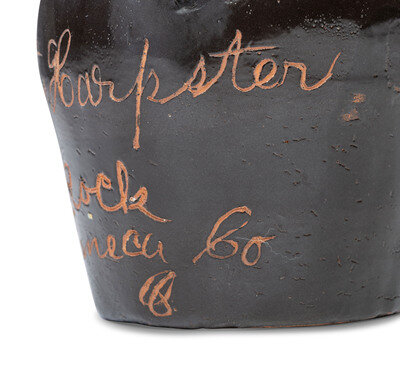 Harpster
ock
neca Co
O